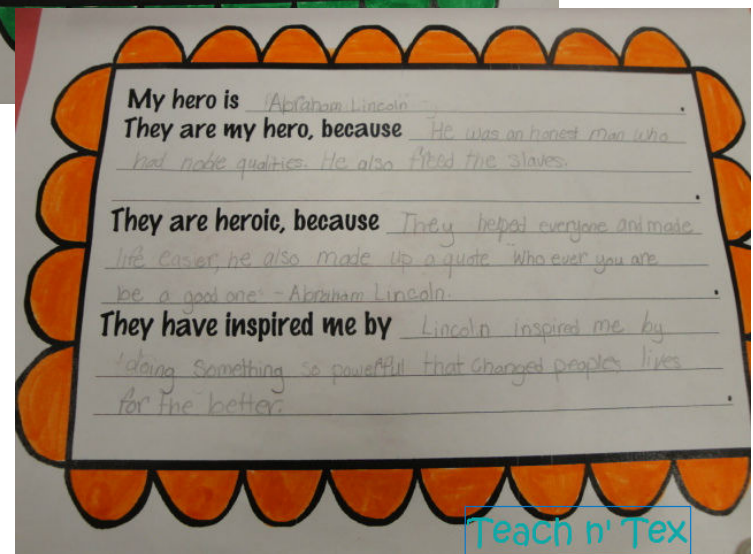 My hero is Abraham Lincoln .
They are my hero, because He was an honest man who
had noble qualities. He also freed the slaves.
.
They are heroic, because They helped everyone and made
life easer, he also made up a quote "Who ever you are
be a good one" -Abraham Lincoln. .
They have inspired me by Lincoln inspired me by
doing something so powerful that changed peoples lives
for the better. .
Teach n' Tex